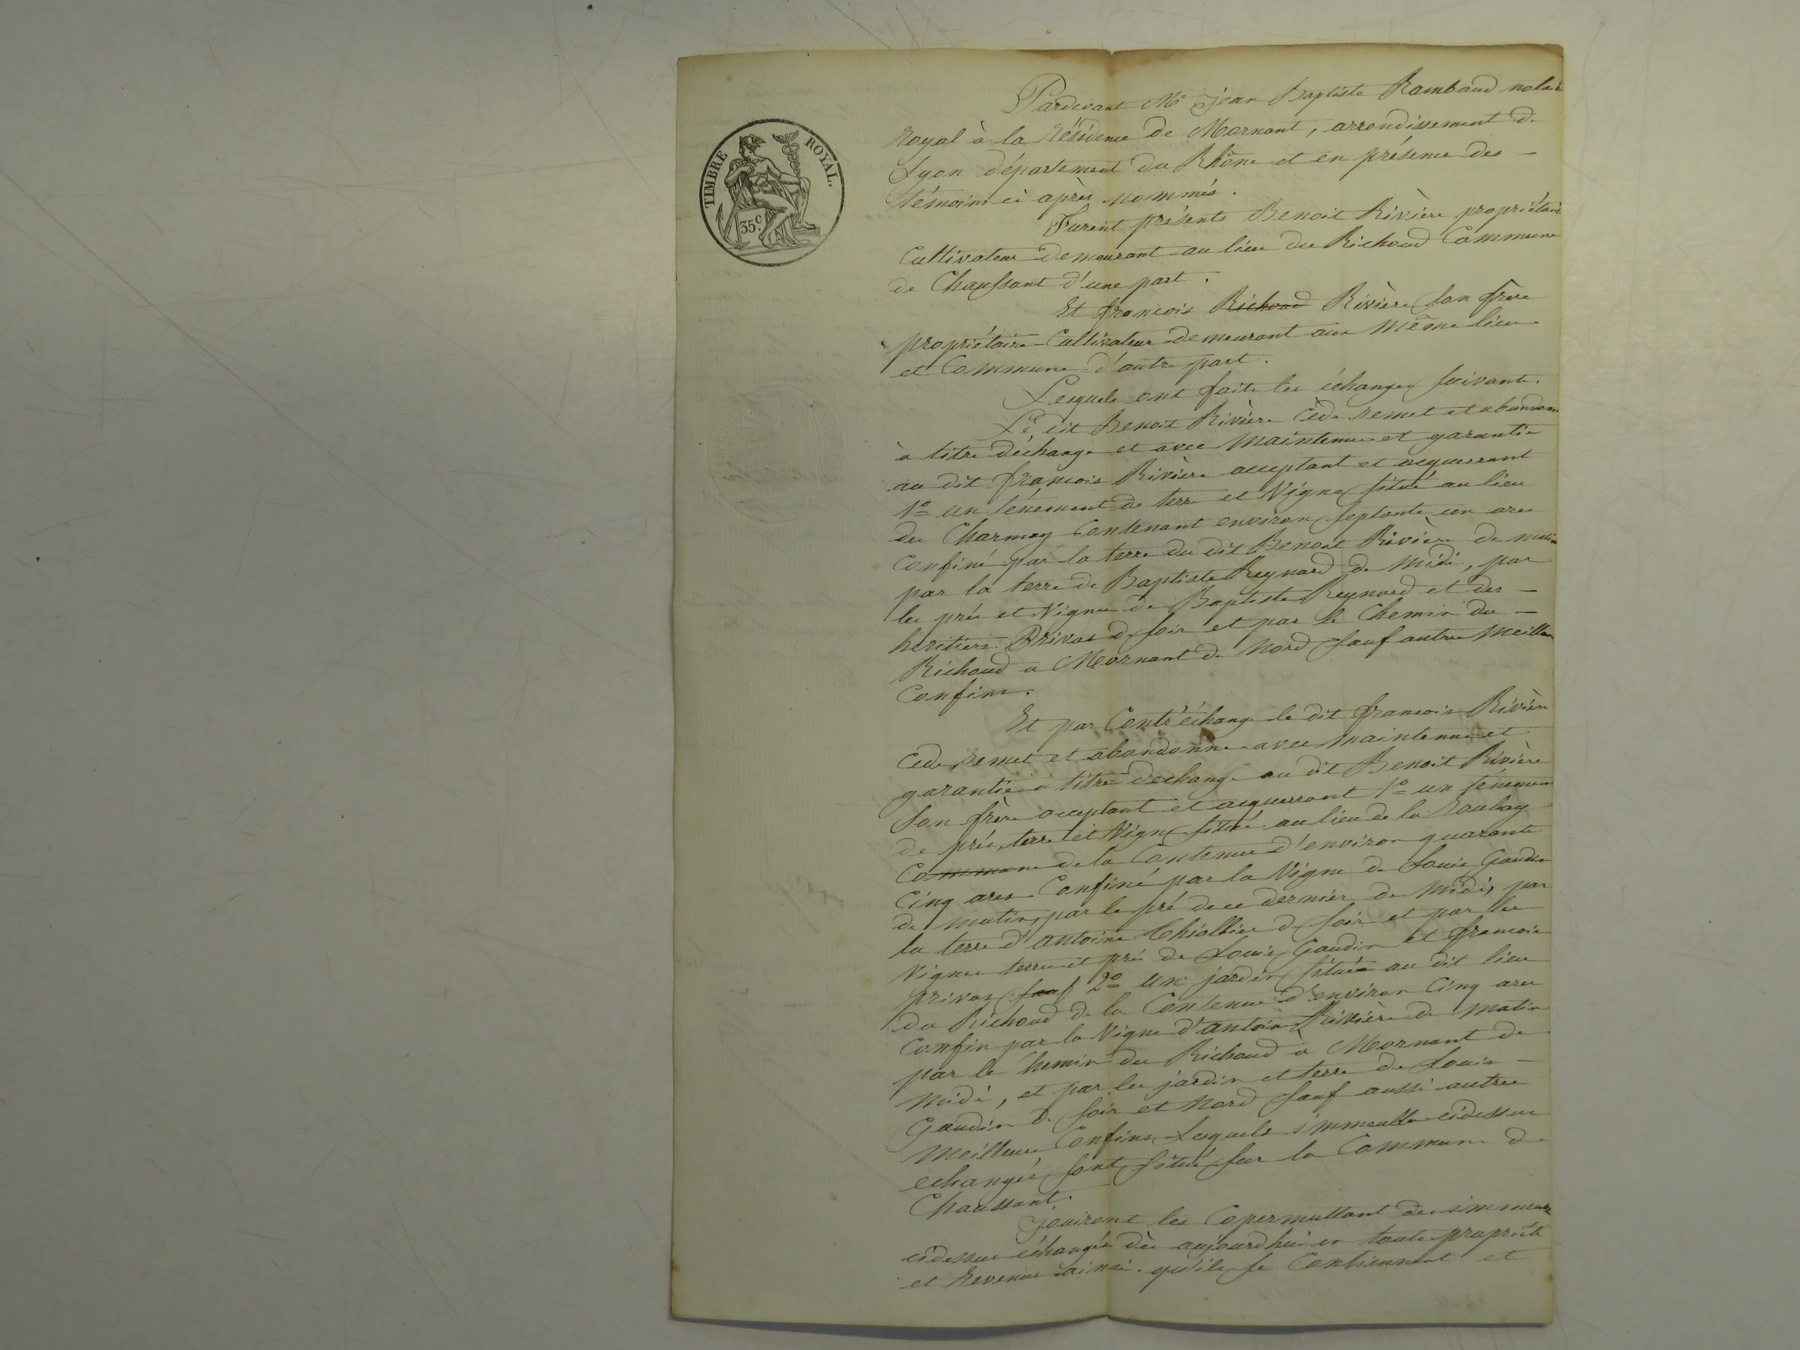 TIMBRE ROYAL.
35c
Pardevant Me jean Baptiste Rambaud notaire
Royal à la Résidence de Mornant, arrondissement de
Lyon département du Rhône et en présence des
témoins ci après nommés.
Furent présents Benoit Rivière propriétaire
Cultivateur demeurant au lieu du Richoud Commune
de Chaussant d'une part.
Et françois Richoud Rivière son frère
propriétaire Cultivateur demeurant aux même lieu
et Commune d'autre part.
Lesquels ont fait les échanges suivants.
Le dit Benoit Rivière Cède remet et abandonne
à titre d'échange et avec Maintenue et garantie
au dit françois Rivière acceptant et acquerrant
1o un ténement de terre et Vigne situé au lieu
du Charmay Contenant environ septante un ares
Confiné par la terre du dit Benoit Rivière de matin
par la terre de Baptiste Reynard de Midi, par
les prés et Vigne de Baptiste Reynard et des
heritiers Privas de soir et par le Chemin du
Richoud a Mornant de Nord sauf autres Meilleurs
Confins.
Et par Contr'échange le dit françois Rivière
Cede, remet et abandonne avec Maintenue et
garantie à titre d'echange au dit Benoit Rivière
son frère acceptant et acquerrant 1o un ténement
de prés, terre et Vigne situé au lieu de la
Commune de la Contenue d'environ quarante
Cinq ares Confiné par la Vigne de Louis Gaudin
de matin, par le pré de ce dernier de Midi, par
la terre d'antoine Thiollier de soir et par les
Vignes terre et pré de Louis Gaudin et françois
privas sauf 2o un jardin situé au dit lieu
du Richoud de la Contenue d'environ Cinq ares
Confin par la Vigne d'antoine Rivière de matin
par le Chemin du Richoud à Mornant de
Midi, et par les jardin et terre de Louis
Gaudin de soir et Nord sauf aussi autres
Meilleurs Confins Lesquels immeubles cidessus
echangés sont situés sur la Commune de
Chaussant.
Jouiront les Copermuttant des immeubles
cidessus échangés dès aujourdhui en toute propriété
et Revenus ainsi qu'ils se Contiennent et